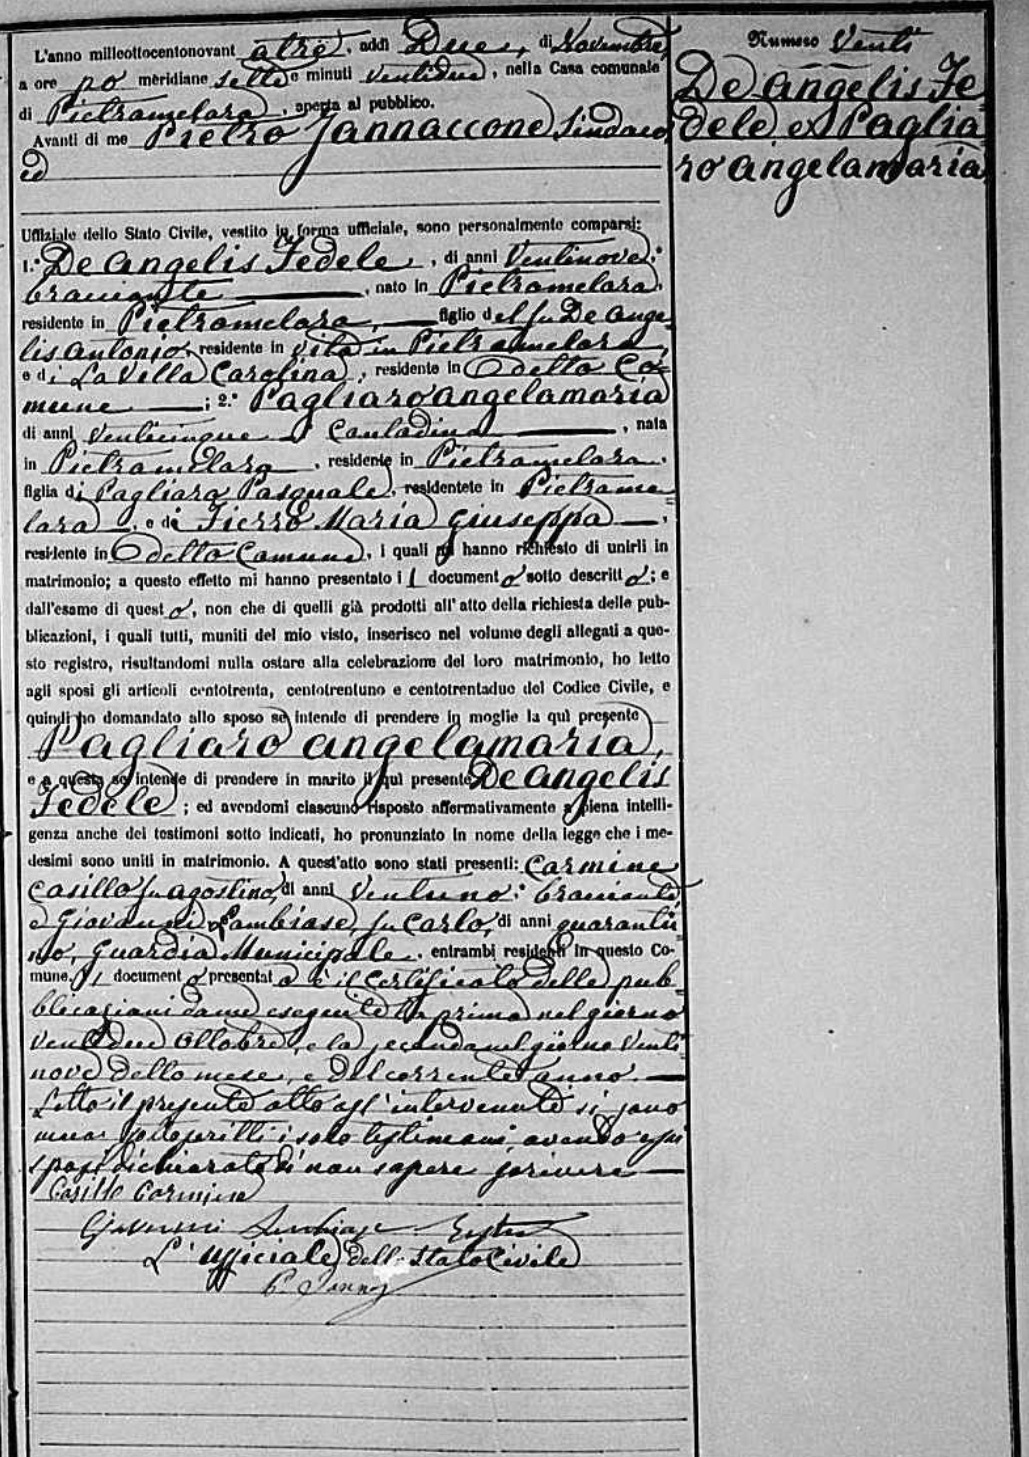 L'anno milleottocentonovant atrè, addì Due, di Novembre,
a ore po meridiane sette e minuti ventidue, nella Casa comunale
di Pietramelara, aperta al pubblico.
Avanti di me Pietro Jannaccone Sindaco
ed
Uffiziale dello Stato Civile, vestito in forma ufficiale, sono personalmente comparsi:
1.° De Angelis Fedele, di anni Ventinove,
bracciante, nato in Pietramelara,
residente in Pietramelara, figlio del fu De Ange
lis Antonio, residente in vita in Pietramelara,
e di La Villa Carolina, residente in detto Co=
mune; 2.° Pagliaro Angelamaria
di anni Venticinque, Contadina, nata
in Pietramelara, residente in Pietramelara,
figlia di Pagliaro Pasquale, residentete in Pietrame
lara, e di Fierro Maria Giuseppa,
residente in detto Comune, i quali mi hanno richiesto di unirli in
matrimonio; a questo effetto mi hanno presentato il documento sotto descritto; e
dall'esame di questo, non che di quelli già prodotti all'atto della richiesta delle pub-
blicazioni, i quali tutti, muniti del mio visto, inserisco nel volume degli allegati a que-
sto registro, risultandomi nulla ostare alla celebrazione del loro matrimonio, ho letto
agli sposi gli articoli centotrenta, centotrentuno e centotrentadue del Codice Civile, e
quindi ho domandato allo sposo se intende di prendere in moglie la quì presente
Pagliaro Angelamaria,
e a questa se intende di prendere in marito il quì presente De Angelis
Fedele; ed avendomi ciascuno risposto affermativamente a piena intelli-
genza anche dei testimoni sotto indicati, ho pronunziato in nome della legge che i me-
desimi sono uniti in matrimonio. A quest'atto sono stati presenti: Carmine
Casillo fu Agostino, di anni Ventuno, bracciante
e Giovanni Lambiase, fu Carlo, di anni quarantu
no, Guardia Municipale, entrambi residenti in questo Co-
mune. Il documento presentato è il certificato delle pub=
blicazioni da me eseguite la prima nel giorno
ventidue Ottobre, e la seconda nel giorno Venti
nove detto mese, e del corrente anno.
Letto il presente atto agl'intervenuti si sono
meco sottoscritti i soli testimoni, avendo essi
sposi dichiarato di non sapere scrivere
Casillo Carmine
Giovanni Lambiase
L'Ufficiale dello Stato Civile
P. Jann
Numero Venti
De Angelis Fe=
dele e Paglia
ro Angelamaria